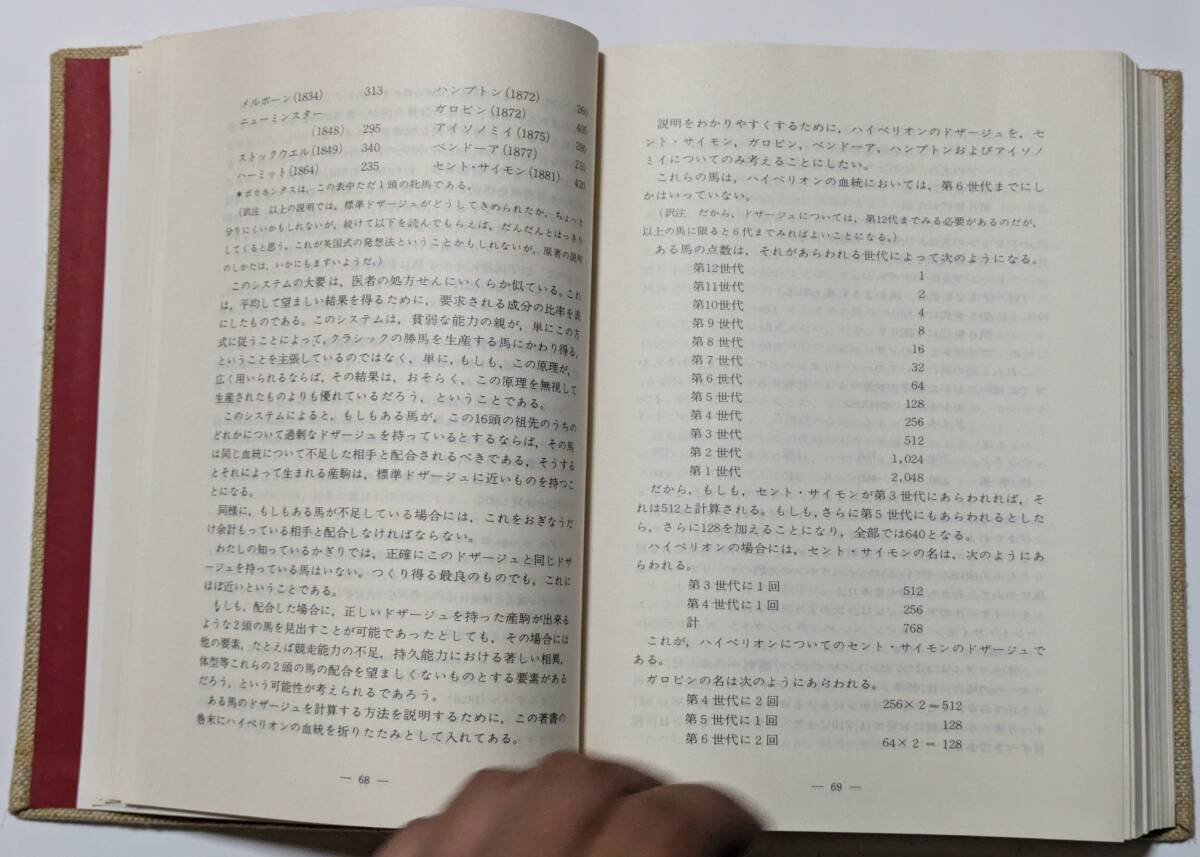 メルボーン(1834) 313
ニューミンスター
(1848) 295
ストックウエル(1849) 340
ハーミット(1864) 235
ハンプトン(1872) 260
ガロピン(1872) 405
アイソノミイ(1875) 280
ベンドーア(1877) 210
セント・サイモン(1881) 420
*ポカホンタスは，この表中ただ1頭の牝馬である。
(訳注 以上の説明では，標準ドザージュがどうしてきめられたか，ちょっと
分りにくいかもしれないが，続けて以下を読んでもらえば，だんだんとはっきり
してくると思う。これが英国式の発想法ということかもしれないが，原著の説明
のしかたは，いかにもまずいようだ。)
このシステムの大要は，医者の処方せんにいくらか似ている。これ
は，平均して望ましい結果を得るために，要求される成分の比率を表
にしたものである。このシステムは，貧弱な能力の親が，単にこの方
式に従うことによって，クラシックの勝馬を生産する馬にかわり得る，
ということを主張しているのではなく，単に，もしも，この原理が，
広く用いられるならば，その結果は，おそらく，この原理を無視して
生産されたものよりも優れているだろう，ということである。
このシステムによると，もしもある馬が，この16頭の祖先のうちの
どれかについて過剰なドザージュを持っているとするならば，その馬
は同じ血統について不足した相手と配合されるべきである，そうする
とそれによって生まれる産駒は，標準ドザージュに近いものを持つこ
とになる。
同様に，もしもある馬が不足している場合には，これをおぎなうだ
け余計もっている相手と配合しなければならない。
わたしの知っているかぎりでは，正確にこのドザージュと同じドザ
ージュを持っている馬はいない。つくり得る最良のものでも，これに
ほぼ近いということである。
もしも，配合した場合に，正しいドザージュを持った産駒が出来る
ような2頭の馬を見出すことが可能であったとしても，その場合には
他の要素，たとえば競走能力の不足，持久能力における著しい相異，
体型等これらの2頭の馬の配合を望ましくないものとする要素がある
だろう，という可能性が考えられるであろう。
ある馬のドザージュを計算する方法を説明するために，この著書の
巻末にハイペリオンの血統を折りたたみとして入れてある。
— 68 —
説明をわかりやすくするために，ハイペリオンのドザージュを，セ
ント・サイモン，ガロピン，ベンドーア，ハンプトンおよびアイソノ
ミイについてのみ考えることにしたい。
これらの馬は，ハイペリオンの血統においては，第6世代までにし
かはいっていない。
(訳注 だから，ドザージュについては，第12代までみる必要があるのだが，
以上の馬に限ると6代までみればよいことになる。)
ある馬の点数は，それがあらわれる世代によって次のようになる。
第12世代 1
第11世代 2
第10世代 4
第9世代 8
第8世代 16
第7世代 32
第6世代 64
第5世代 128
第4世代 256
第3世代 512
第2世代 1,024
第1世代 2,048
だから，もしも，セント・サイモンが第3世代にあらわれれば，そ
れは512と計算される。もしも，さらに第5世代にもあらわれるとした
ら，さらに128を加えることになり，全部では640となる。
ハイペリオンの場合には，セント・サイモンの名は，次のようにあ
らわれる。
第3世代に1回 512
第4世代に1回 256
計 768
これが，ハイペリオンについてのセント・サイモンのドザージュで
ある。
ガロピンの名は次のようにあらわれる。
第4世代に2回 256×2＝512
第5世代に1回 128
第6世代に2回 64×2 ＝ 128
— 69 —